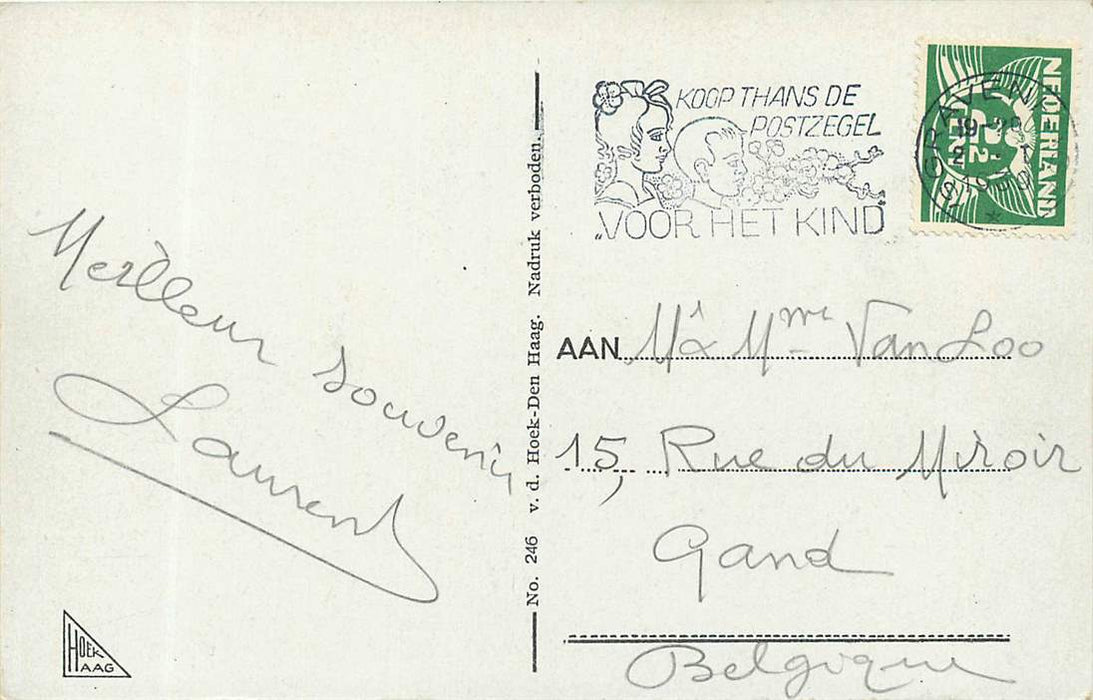 Meilleur souvenir
Laurent
HOEK
HAAG
No. 246 v. d. Hoek-Den Haag. Nadruk verboden.
KOOP THANS DE
POSTZEGEL
„VOOR HET KIND”
NEDERLAND
2½
CENT
'S GRAVEN
AAN Mr & Mme Van Loo
15, Rue du Miroir
Gand
Belgique